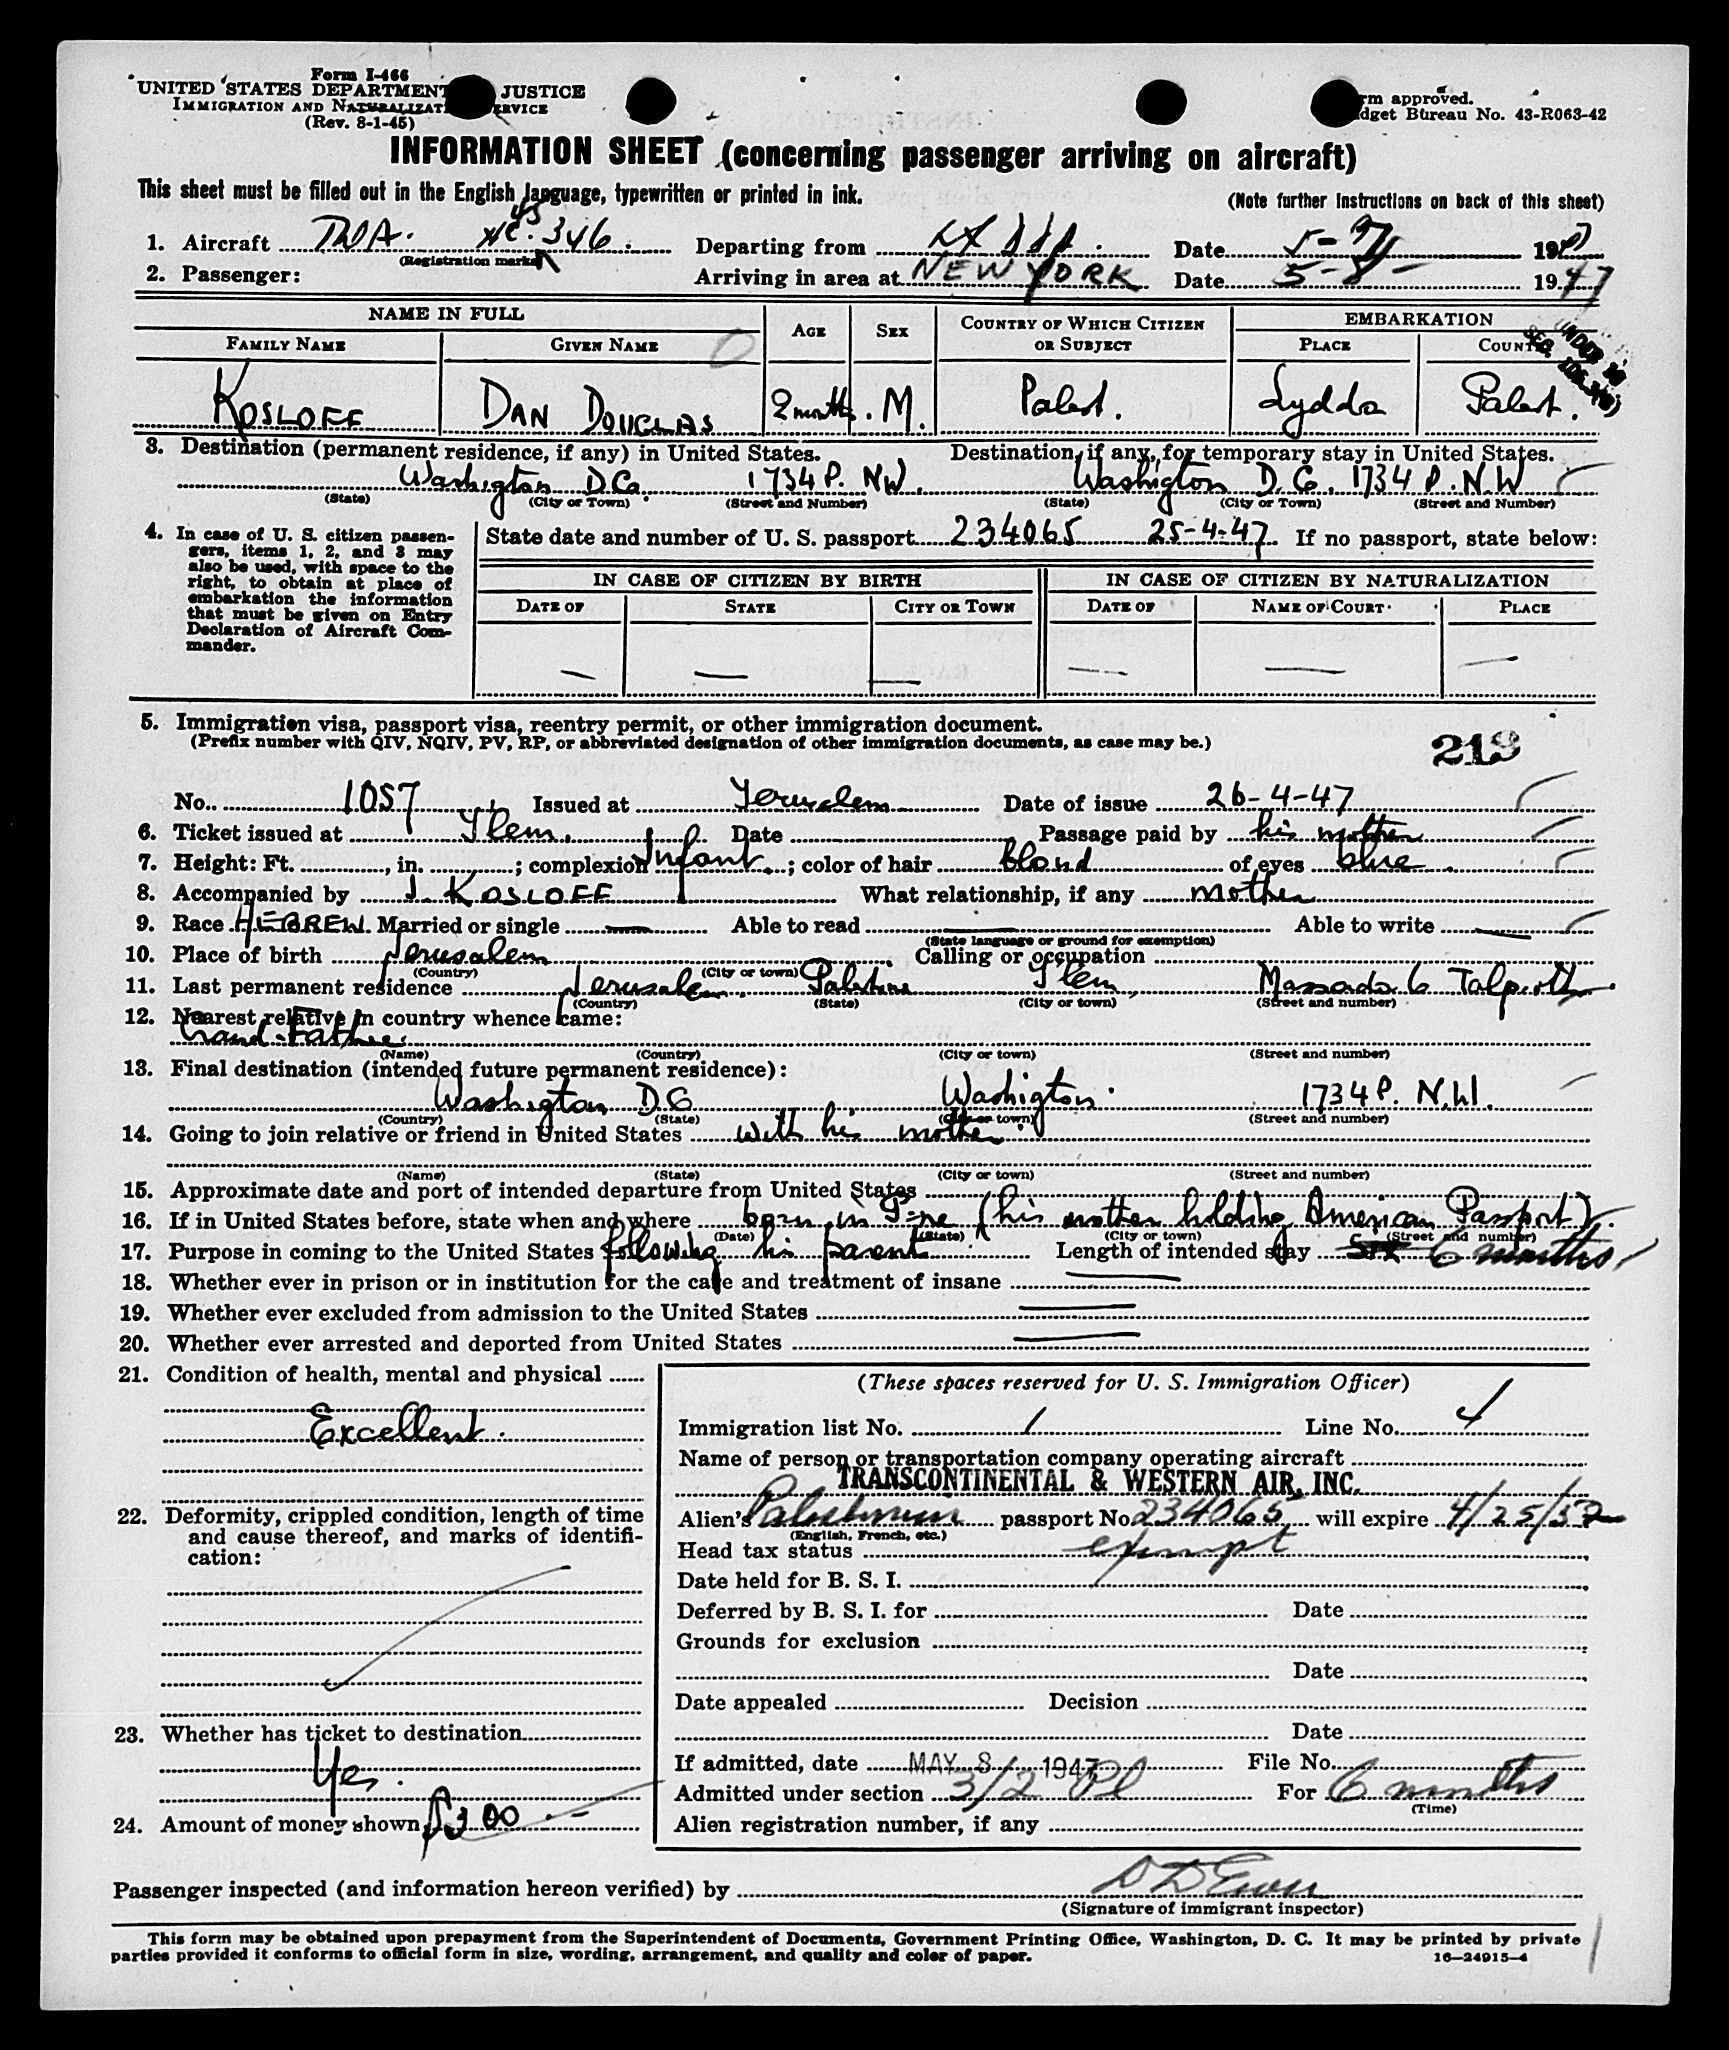 Form I-466
UNITED STATES DEPARTMENT JUSTICE
IMMIGRATION AND NATURALIZATION SERVICE
(Rev. 8-1-45)
Form approved.
Budget Bureau No. 43-R063-42
INFORMATION SHEET (concerning passenger arriving on aircraft)
This sheet must be filled out in the English language, typewritten or printed in ink.
(Note further instructions on back of this sheet)
45
1. Aircraft TWA. NC. 346. Departing from Lydda. Date 5-7 1947
(Registration marks)
2. Passenger: Arriving in area at NEW YORK Date 5-8- 1947
NAME IN FULL AGE SEX COUNTRY OF WHICH CITIZEN OR SUBJECT EMBARKATION
FAMILY NAME GIVEN NAME PLACE COUNTRY
UNDER 16
KOSLOFF DAN DOUGLAS 2 months. M. Palest. Lydda Palest.
3. Destination (permanent residence, if any) in United States. Destination, if any, for temporary stay in United States.
Washigton D.C. 1734 P. NW. Washigton D.C. 1734 P. N.W
(State) (City or Town) (Street and Number) (State) (City or Town) (Street and Number)
4. In case of U. S. citizen passengers, items 1, 2, and 3 may also be used, with space to the right, to obtain at place of embarkation the information that must be given on Entry Declaration of Aircraft Commander.
State date and number of U. S. passport 234065 25-4-47. If no passport, state below:
IN CASE OF CITIZEN BY BIRTH IN CASE OF CITIZEN BY NATURALIZATION
DATE OF STATE CITY OR TOWN DATE OF NAME OF COURT PLACE
— — — — — —
5. Immigration visa, passport visa, reentry permit, or other immigration document.
(Prefix number with QIV, NQIV, PV, RP, or abbreviated designation of other immigration documents, as case may be.)
213
No. 1057 Issued at Jerusalem Date of issue 26-4-47
6. Ticket issued at Jlem. Date Passage paid by his mother
7. Height: Ft. , in. ; complexion Infant. ; color of hair blond of eyes blue.
8. Accompanied by J. KOSLOFF What relationship, if any mother
9. Race HEBREW. Married or single — Able to read — Able to write —
(State language or ground for exemption)
10. Place of birth Jerusalem Calling or occupation
(Country) (City or town)
11. Last permanent residence Jerusalem, Palestine Jlem, Massada 6 Talpioth.
(Country) (State) (City or town) (Street and number)
12. Nearest relative in country whence came:
Grand-Father
(Name) (Country) (City or town) (Street and number)
13. Final destination (intended future permanent residence):
Washigton DC Washigton. 1734 P. N.W.
(Country) (State) (City or town) (Street and number)
14. Going to join relative or friend in United States with his mother.
(Name) (State) (City or town) (Street and number)
15. Approximate date and port of intended departure from United States
16. If in United States before, state when and where born in (his mother holding American Passport).
(Date) (State) (City or town) (Street and number)
17. Purpose in coming to the United States following his parent Length of intended stay Six 6 months
18. Whether ever in prison or in institution for the care and treatment of insane —
19. Whether ever excluded from admission to the United States —
20. Whether ever arrested and deported from United States —
21. Condition of health, mental and physical
Excellent.
22. Deformity, crippled condition, length of time and cause thereof, and marks of identification:
23. Whether has ticket to destination
Yes.
24. Amount of money shown $300.-
(These spaces reserved for U. S. Immigration Officer)
Immigration list No. 1 Line No. 4
Name of person or transportation company operating aircraft
TRANSCONTINENTAL & WESTERN AIR, INC.
Alien's Palestinian passport No. 234065 will expire 4/25/52
(English, French, etc.)
Head tax status exempt
Date held for B. S. I.
Deferred by B. S. I. for Date
Grounds for exclusion
Date
Date appealed Decision
Date
If admitted, date MAY 8 1947 File No.
Admitted under section 3/2 Pl For 6 months
(Time)
Alien registration number, if any
Passenger inspected (and information hereon verified) by
(Signature of immigrant inspector)
This form may be obtained upon prepayment from the Superintendent of Documents, Government Printing Office, Washington, D. C. It may be printed by private
parties provided it conforms to official form in size, wording, arrangement, and quality and color of paper.
16—24915-4